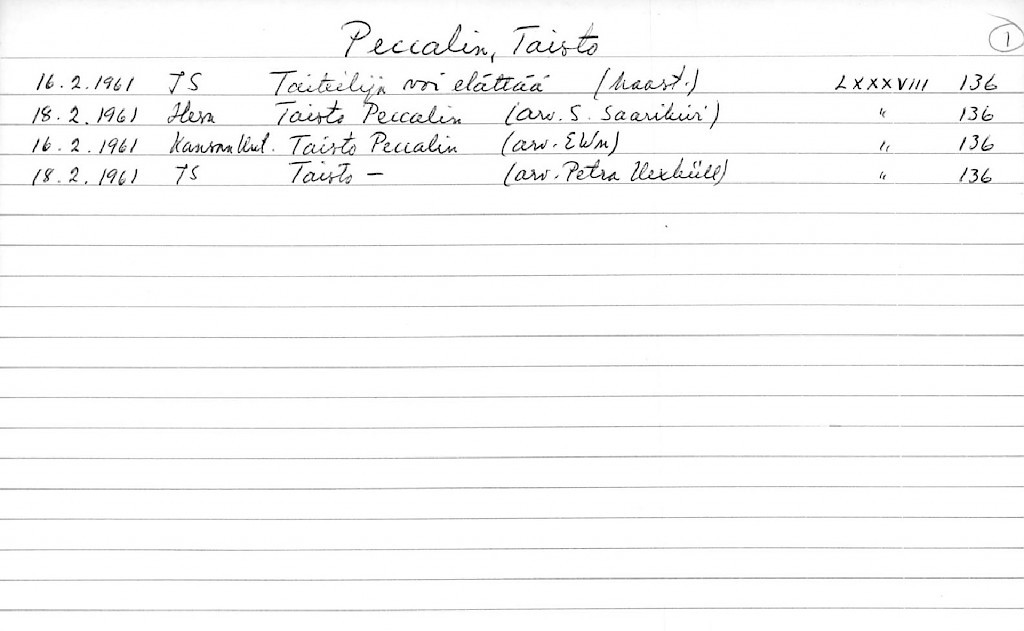 Peccalin, Taisto
1
16.2.1961 TS Taiteilija voi elättää (haast.) LXXXVIII 136
18.2.1961 Hesa Taisto Peccalin (arv. S. Saarikivi) " 136
16.2.1961 Kansan Uut. Taisto Peccalin (arv. EWn) " 136
18.2.1961 TS Taisto — (arv. Petra Uexküll) " 136